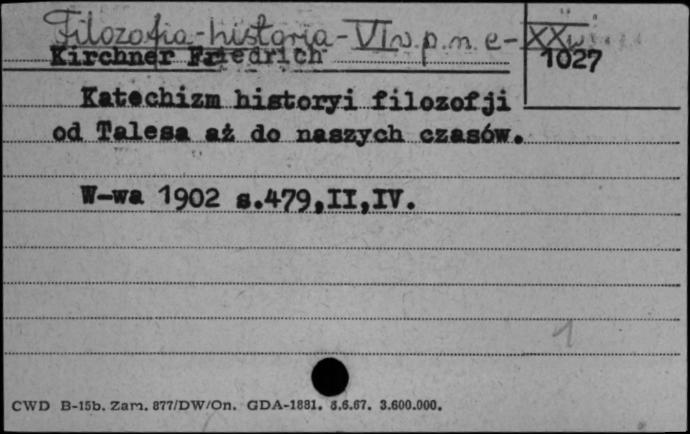 Filozofia - historia - VI w. p. n. e - XX w
Kirchner Friedrich
1027
Katechizm historyi filozofji
od Talesa aż do naszych czasów.
W-wa 1902 s.479,II,IV.
1
CWD B-15b. Zam. 877/DW/On. GDA-1881. 8.6.67. 3.600.000.